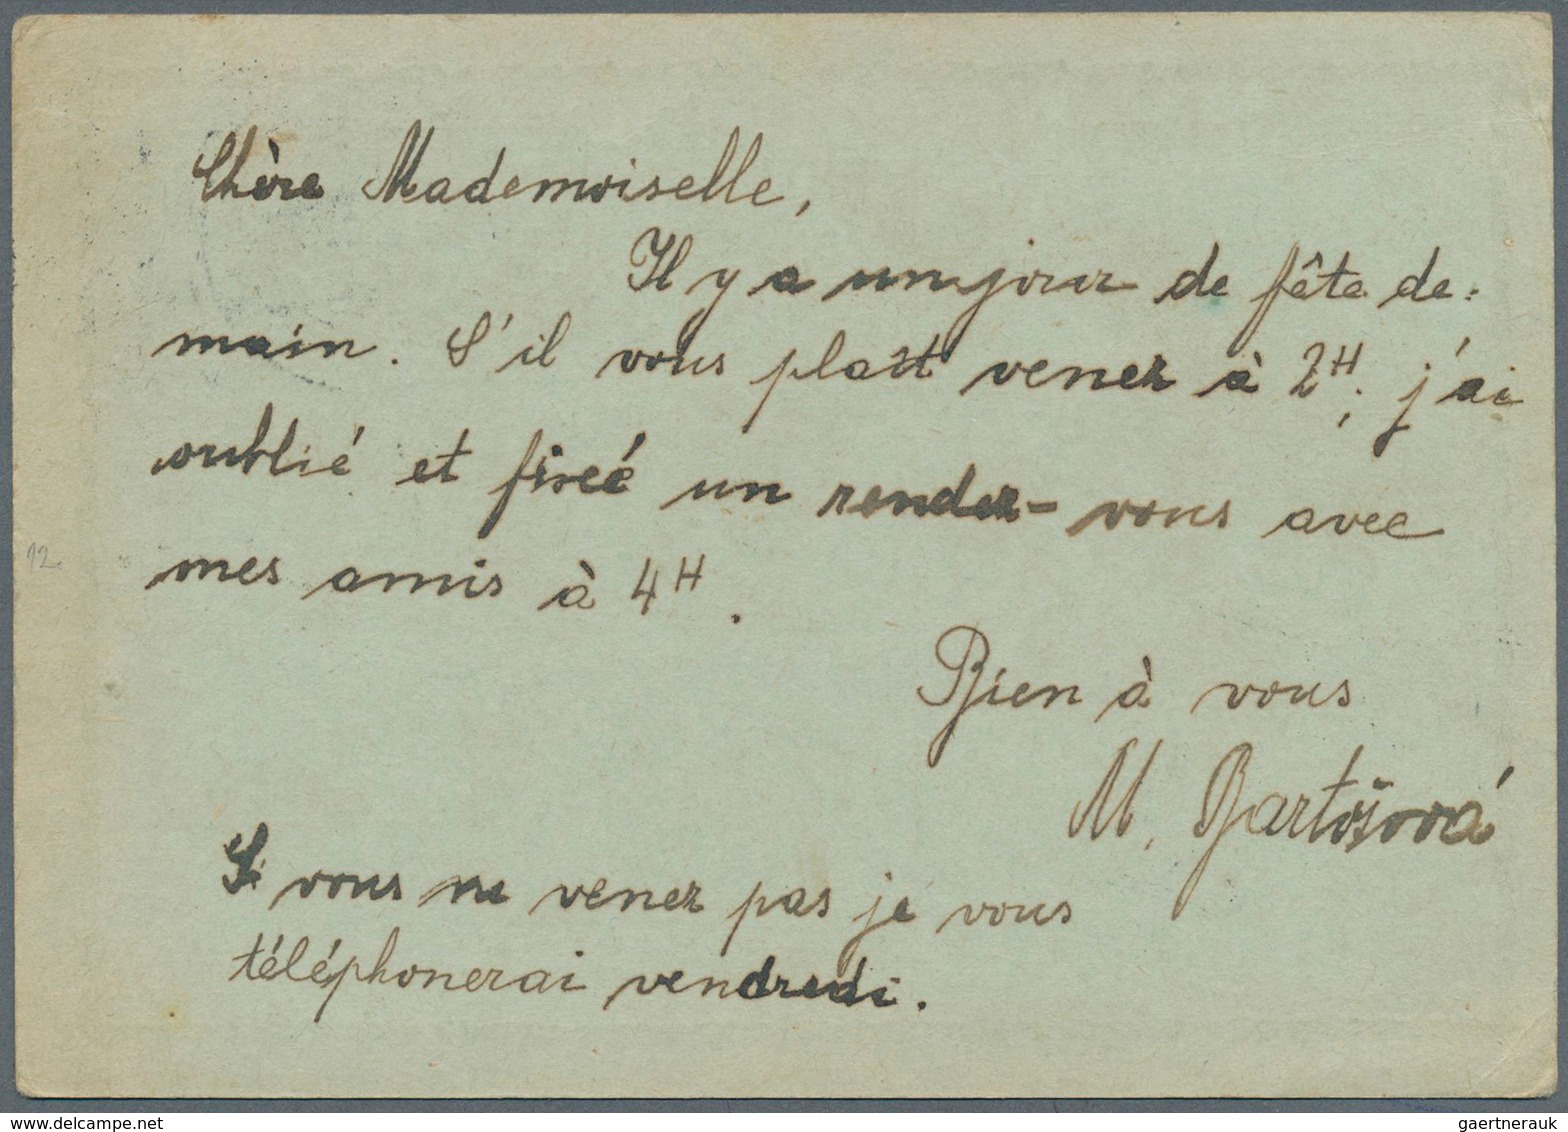 Chère Mademoiselle,
Il y a un jour de fête de-
main. S'il vous plaît venez à 2H; j'ai
oublié et fixé un rendez-vous avec
mes amis à 4H.
Bien à vous
M. Bartošová
Si vous ne venez pas je vous
téléphonerai vendredi.
12
gaertnerauk @ delcampe.net